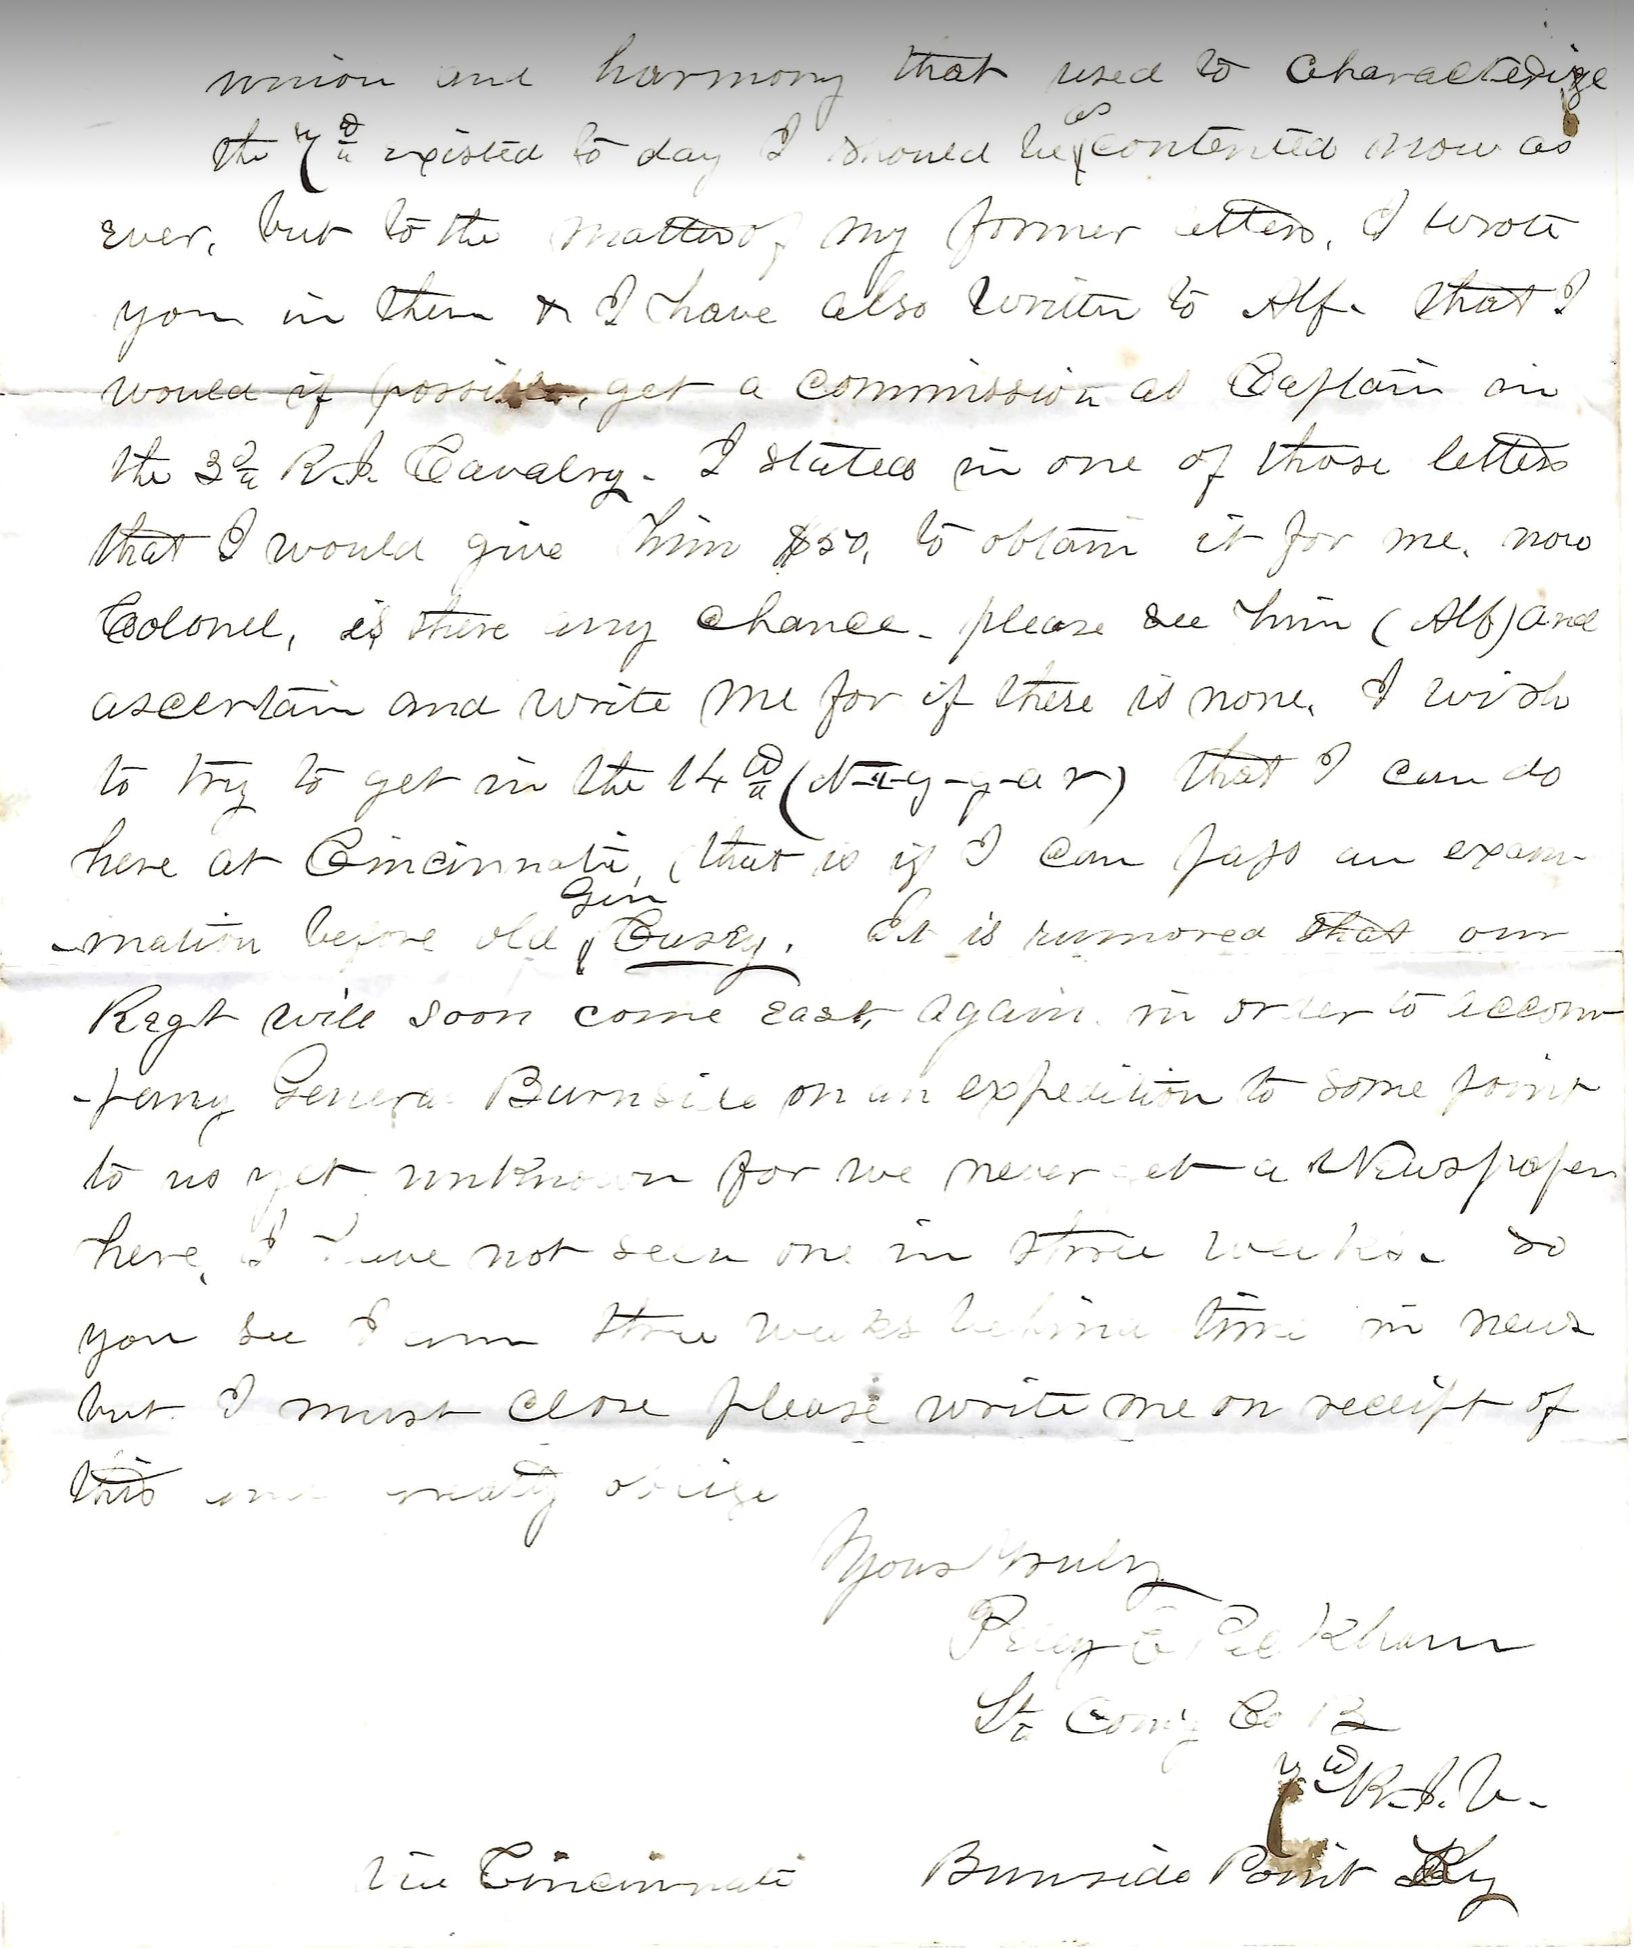 union and harmony that used to characterize
the 7th existed to day I should be as contented now as
ever, but to the matter of my former letters, I wrote
you in them & I have also written to Alf. that I
would if possible, get a commission as Captain in
the 3d R.I. Cavalry. I stated in one of those letters
that I would give him $50, to obtain it for me. now
Colonel, is there any chance. please see him (Alf) and
ascertain and write me for if there is none, I wish
to try to get in the 14th (N-i-g-g-a-r) that I can do
here at Cincinnati, (that is if I can pass an exam-
-ination before old Gen Casey. It is rumored that our
Regt will soon come East, again in order to accom-
-pany General Burnside on an expedition to some point
to us yet unknown for we never get a Newspaper
here, I have not seen one in three weeks. so
you see I am three weeks behind time in news
but I must close please write me on receipt of
this and greatly oblige
Yours Truly
Peleg E Peckham
Lt. Com'g Co B
7th R.I.V.
Via Cincinnati Burnside Point Ky